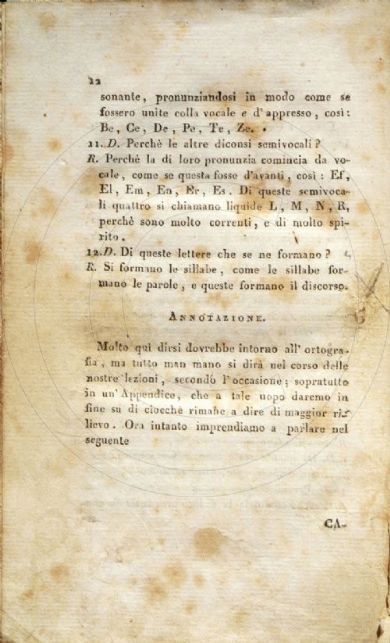 22
sonante, pronunziandosi in modo come se
fossero unite colla vocale e d'appresso, così:
Be, Ce, De, Pe, Te, Ze.
11. D. Perchè le altre diconsi semivocali?
R. Perchè la di loro pronunzia comincia da vo-
cale, come se questa fosse d'avanti, così: Ef,
El, Em, En, Er, Es. Di queste semivoca-
li quattro si chiamano liquide L, M, N, R,
perchè sono molto correnti, e di molto spi-
rito.
12. D. Di queste lettere che se ne formano?
R. Si formano le sillabe, come le sillabe for-
mano le parole, e queste formano il discorso.
ANNOTAZIONE.
Molto quì dirsi dovrebbe intorno all' ortogra-
fia, ma tutto man mano si dirà nel corso delle
nostre lezioni, secondo l'occasione; sopratutto
in un' Appendice, che a tale uopo daremo in
fine su di ciocchè rimane a dire di maggior ri-
lievo. Ora intanto imprendiamo a parlare nel
seguente
CA-